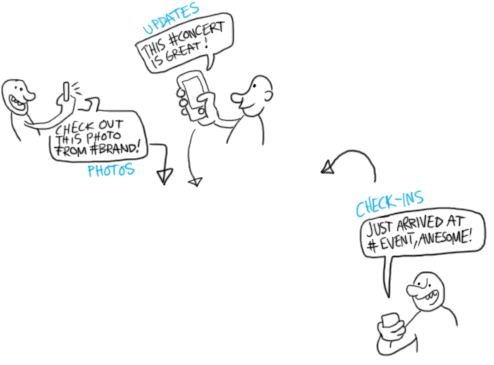 UPDATES
THIS #CONCERT
IS GREAT!
CHECK OUT
THIS PHOTO
FROM #BRAND!
PHOTOS
CHECK-INS
JUST ARRIVED AT
#EVENT, AWESOME!